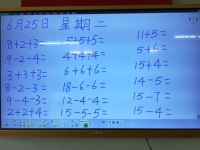 6月25日 星期二
8+2+3= 5+5+5= 11+5=
9-2-4= 4+4+4= 5+6=
3+3+3= 6+6+6= 15+4=
8-2-3= 18-6-6= 14-5=
9-4-3= 12-4-4= 15-7=
2+2+2= 15-5-5= 15-4=